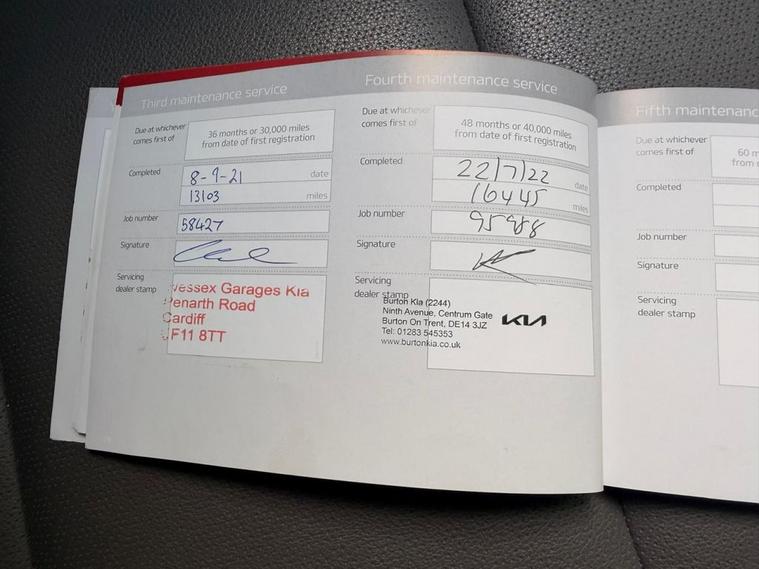 Third maintenance service
Due at whichever
comes first of
36 months or 30,000 miles
from date of first registration
Completed
8-9-21
date
13103
miles
Job number
58427
Signature
Servicing
dealer stamp
Wessex Garages Kia
Penarth Road
Cardiff
CF11 8TT
Fourth maintenance service
Due at whichever
comes first of
48 months or 40,000 miles
from date of first registration
Completed
22/7/22
date
16445
miles
Job number
95988
Signature
Servicing
dealer stamp
Burton Kia (2244)
Ninth Avenue, Centrum Gate
Burton On Trent, DE14 3JZ
Tel: 01283 545353
www.burtonkia.co.uk
KIA
Fifth maintenanc
Due at whichever
comes first of
60 m
from
Completed
Job number
Signature
Servicing
dealer stamp